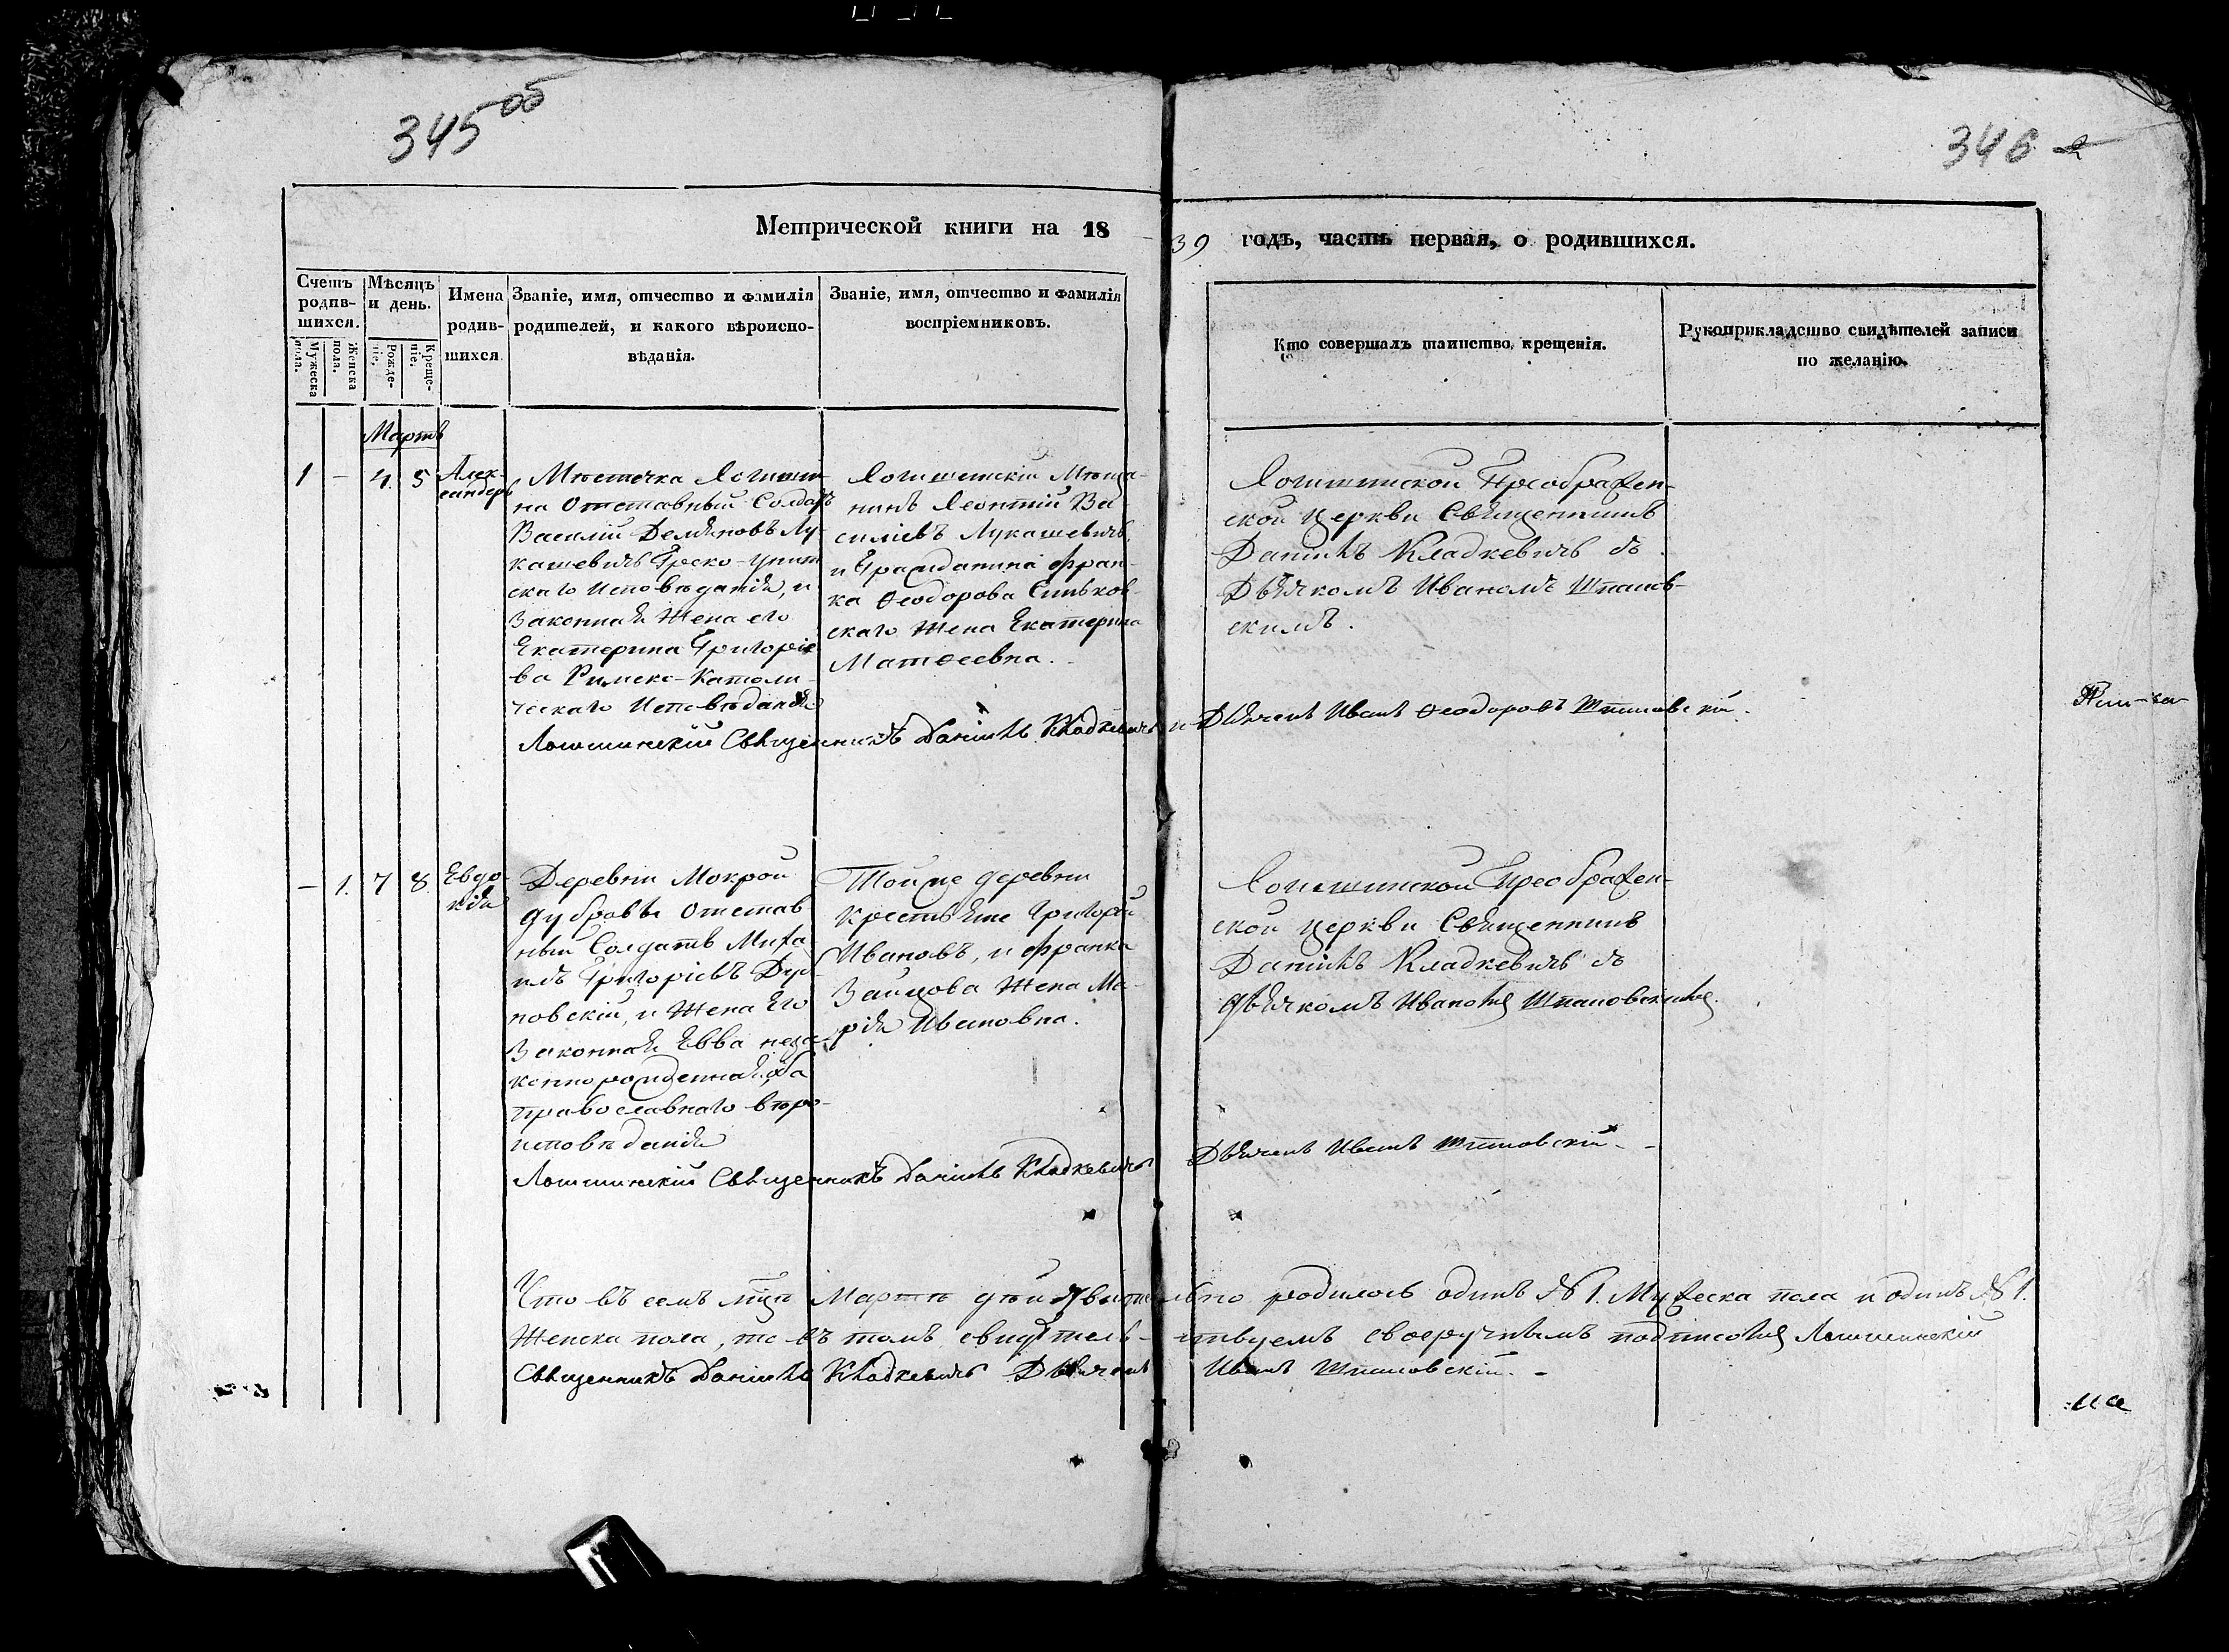 345 об
346
Метрической книги на 18
39 годъ, часть первая, о родившихся.
Счетъ родив-шихся.
Мужеска пола.
Женска пола.
Мѣсяцъ и день.
Рожде-ніе.
Креще-ніе.
Имена
родив-
шихся
Званіе, имя, отчество и фамилія
родителей, и какого вѣроиспо-
вѣданія.
Званіе, имя, отчество и фамилія
воспріемниковъ.
Кто совершалъ таинство крещенія.
Рукоприкладство свидѣтелей записи
по желанію.
Мартъ
1 - 4. 5
Алек-
сандеръ
Мѣстечка Логиши-
на Отставный Солдатъ
Василій Демяновъ Лу-
кашевичъ Греко-унит
скаго исповѣданія, и
Законная Жена его
Екатерина Григоріе
ва Римско-Католи-
ческаго Исповѣданія
Логишинскій Мѣща-
нинъ Леонтій Ва
силіевъ Лукашевичъ,
и Гражданина Фран-
ка Ѳеодорова Синков
скаго Жена Екатерина
Матѳеевна.
Логишинской Преображен-
ской церкви Священникъ
Даніилъ Кладкевичъ съ
Дьячкомъ Иваномъ Шпаков-
скимъ.
Логишинскій Священникъ Даніилъ Кладкевичъ и Дьячекъ Иванъ Ѳеодоровъ
- 1. 7 8
Евдо-
кія
Деревни Мокрой
дубровы Отстав
ный Солдатъ Миха
илъ Григоріевъ
новскій, и Жена Его
Законная Евва неза-
конно рожденная, оба
православнаго вѣро-
исповѣданія
Той же деревни
Крестьяне Григорій
Ивановъ, и Франка
Зайцова Жена Ма-
рія Ивановна.
Логишинской Преображен-
ской церкви Священникъ
Даніилъ Кладкевичъ съ
дьячкомъ Иваномъ
Логишинскій Священникъ Даніилъ Кладкевичъ Дьячекъ Иванъ
Что въ семъ мцѣ Мартѣ дѣйствительно родилось одинъ № 1. Мужеска пола и одинъ № 1.
Женска пола, то въ томъ свидѣтель-ствуемъ своеручнымъ подписомъ Логишинскій
Священникъ Даніилъ Кладкевичъ Дьячекъ Иванъ